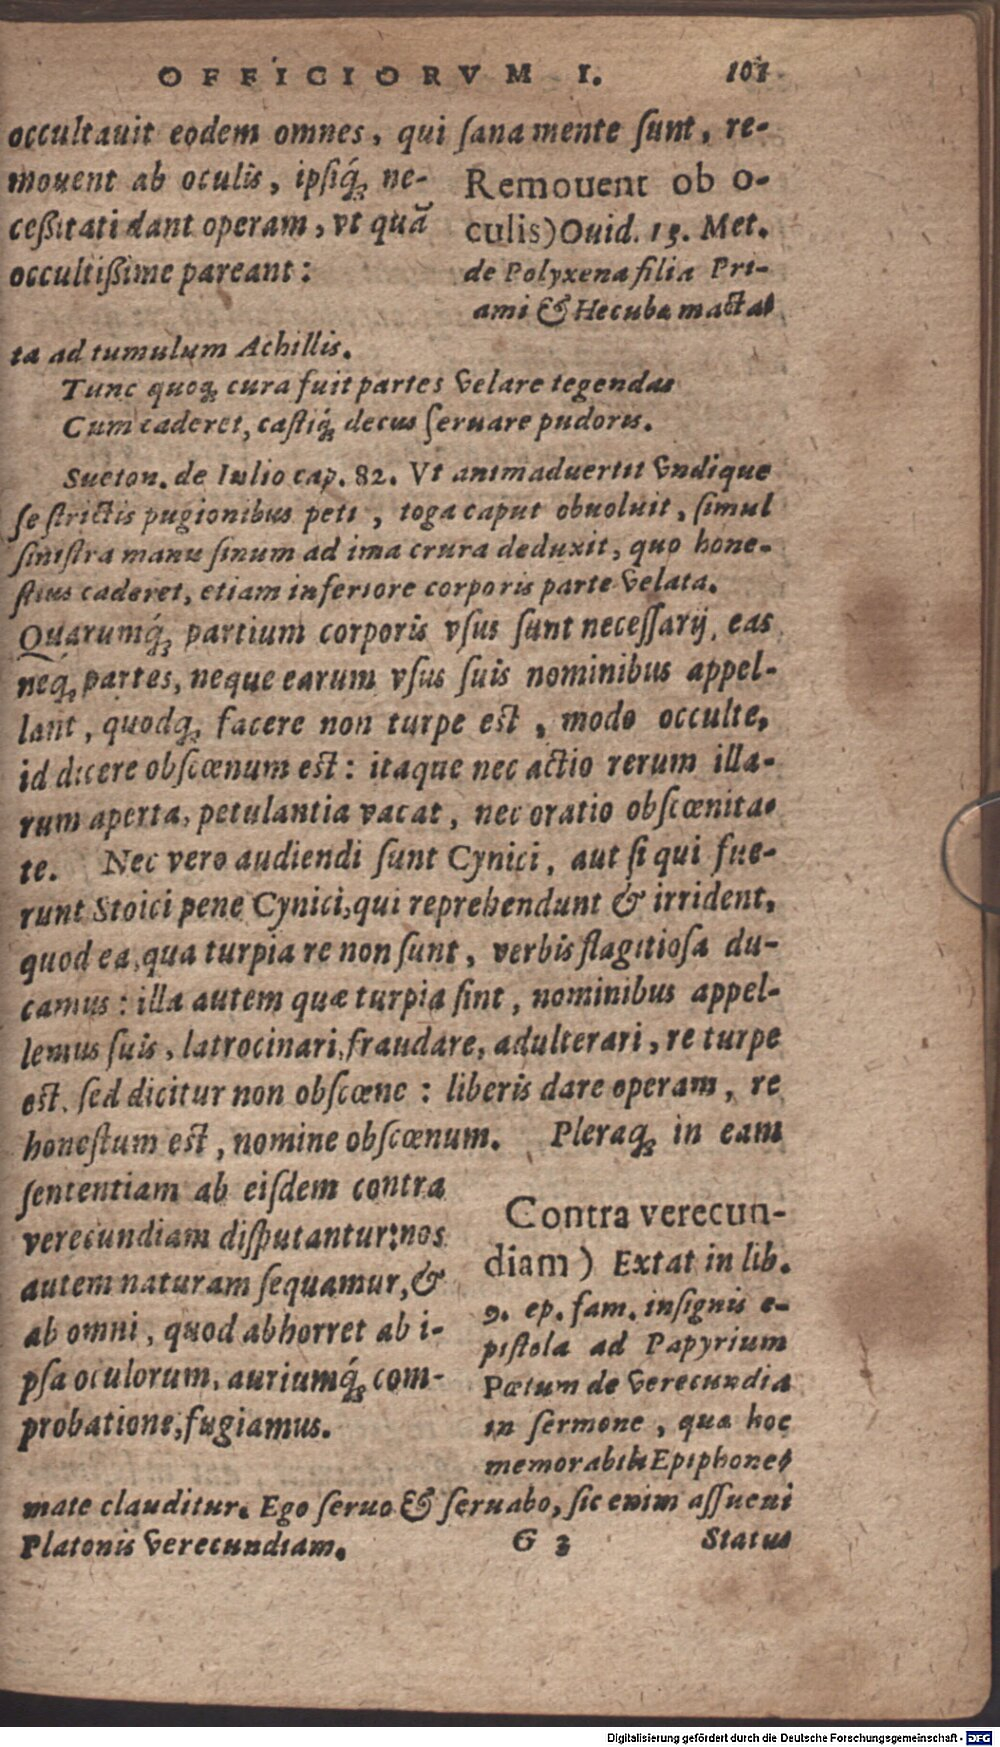 OFFICIORVM I. 101
occultauit eodem omnes, qui ſana mente ſunt, re-
mouent ab oculis, ipſiq́ꝫ ne-
ceßitati dant operam, vt quā
occultißime pareant:
Remouent ob o-
culis) Ouid. 13. Met.
de Polyxena filia Pri-
ami & Hecuba macta-
ta ad tumulum Achillis.
Tunc quoqꝫ cura fuit partes velare tegendas
Cum caderet, caſtiq́ꝫ decus ſeruare pudoris.
Sueton. de Iulio cap. 82. Vt animaduertit vndique
ſe ſtrictis pugionibus peti, toga caput obuoluit, ſimul
ſiniſtra manu ſinum ad ima crura deduxit, quo hone-
ſtius caderet, etiam inferiore corporis parte velata.
Quarumq́ꝫ partium corporis vſus ſunt neceſſarij, eas
neqꝫ partes, neque earum vſus ſuis nominibus appel-
lant, quodqꝫ facere non turpe eſt, modo occulte,
id dicere obſcœnum eſt: itaque nec actio rerum illa-
rum aperta, petulantia vacat, nec oratio obſcœnita-
te. Nec vero audiendi ſunt Cynici, aut ſi qui fue-
runt Stoici pene Cynici, qui reprehendunt & irrident,
quod ea, qua turpia re non ſunt, verbis flagitioſa du-
camus: illa autem quæ turpia ſint, nominibus appel-
lemus ſuis, latrocinari, fraudare, adulterari, re turpe
eſt, ſed dicitur non obſcœne: liberis dare operam, re
honeſtum eſt, nomine obſcœnum. Pleraqꝫ in eam
ſententiam ab eiſdem contra
verecundiam diſputantur: nos
autem naturam ſequamur, &
ab omni, quod abhorret ab i-
pſa oculorum, auriumq́ꝫ com-
probatione, fugiamus.
Contra verecun-
diam) Extat in lib.
9. ep. fam. inſignis e-
piſtola ad Papyrium
Pætum de verecundia
in ſermone, qua hoc
memorabili Epiphone-
mate clauditur. Ego ſeruo & ſeruabo, ſic enim aſſueui
Platonis verecundiam.
G 3 Status
Digitalisierung gefördert durch die Deutsche Forschungsgemeinschaft - DFG